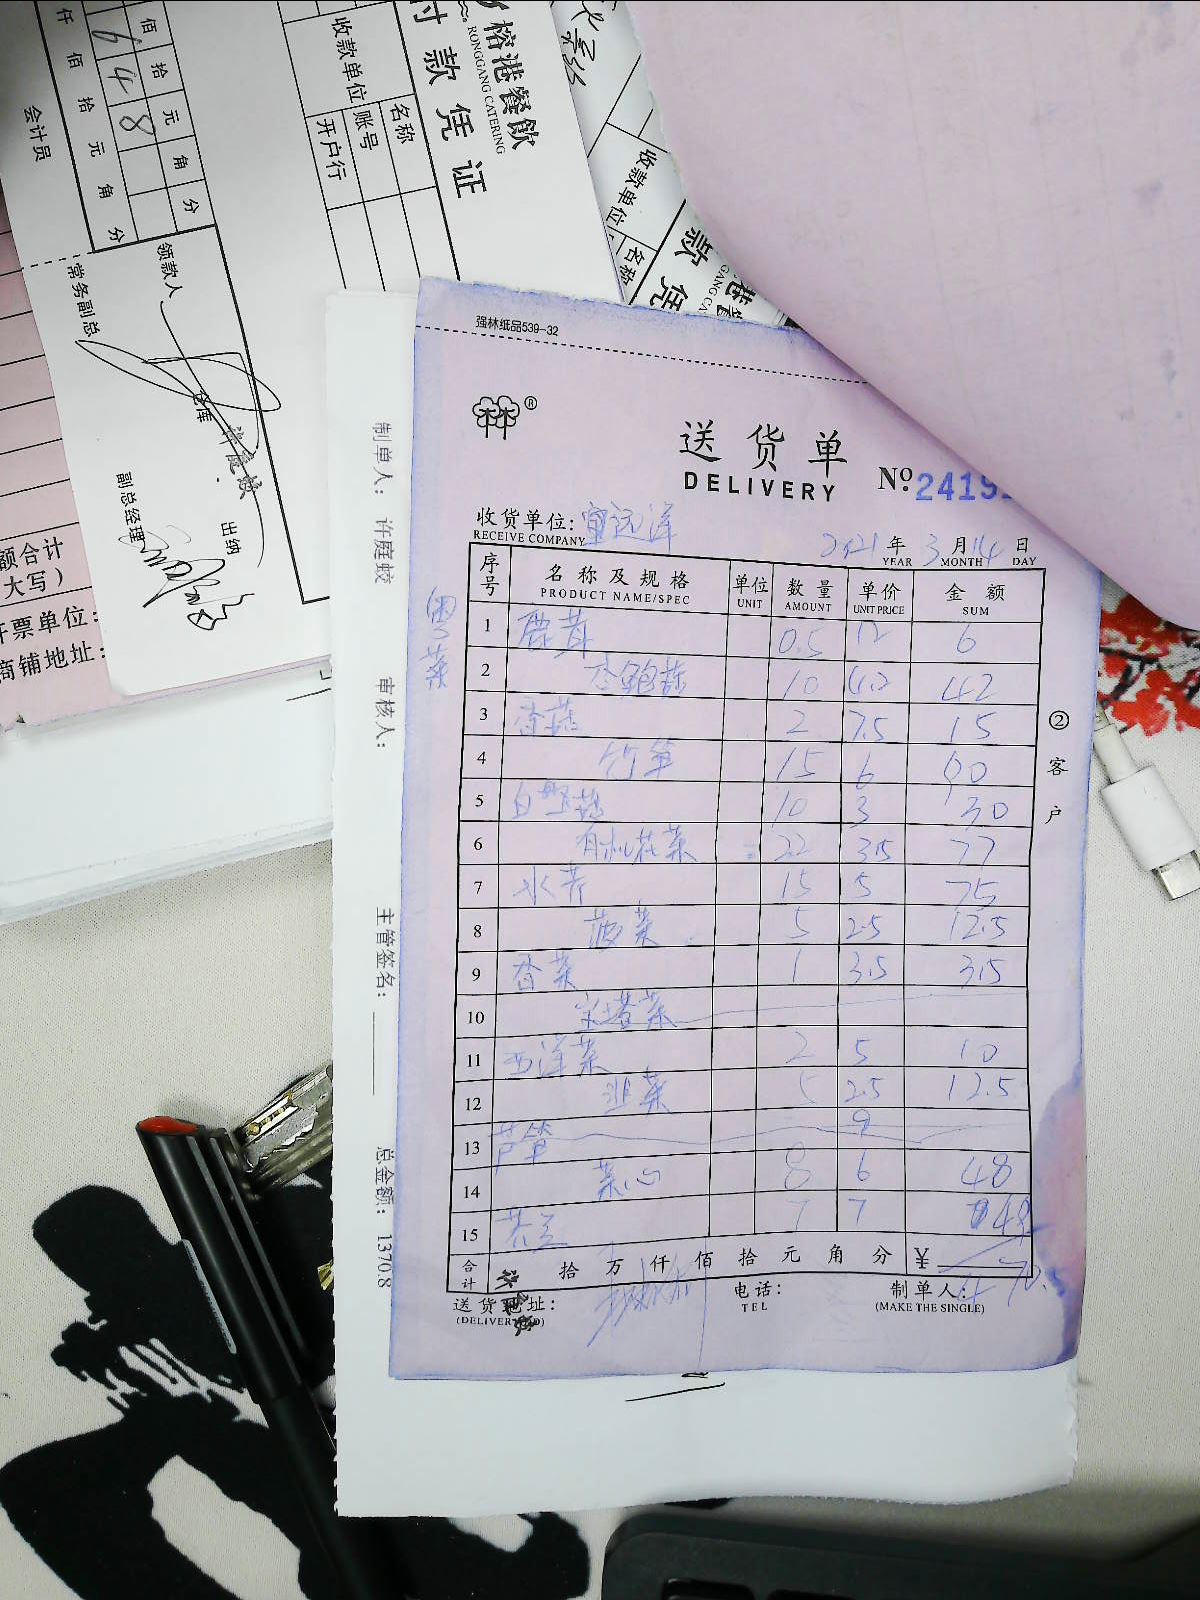 榕港餐飲
RONGGANG CATERING
付款凭证
收款单位
名称
账号
开户行
佰 拾 元 角 分
6 4 8
仟 佰 拾 元 角 分
会计员
领款人
常务副总
仓库
出纳
副总经理
收款单位
名称
款凭
额合计
大写）
开票单位：
商铺地址：
制单人： 许庭蛟
审核人：
主管签名：
总金额： 1370.8
强林纸品539-32
®
送货单
DELIVERY
№ 2419
收货单位：
RECEIVE COMPANY
2021 年 3 月 14 日
YEAR MONTH DAY
序号 名称及规格 单位 数量 单价 金额
PRODUCT NAME/SPEC UNIT AMOUNT UNIT PRICE SUM
1 鹿茸 0.5 12 6
2 鲍菇 10 4.2 42
3 香菇 2 7.5 15
4 竹笋 15 6 90
5 白 菇 10 3 30
6 有机花菜 22 3.5 77
7 水芹 15 5 75
8 菠菜 5 2.5 12.5
9 香菜 1 3.5 3.5
10 宝塔菜
11 西洋菜 2 5 10
12 韭菜 5 2.5 12.5
13 芦笋 9
14 菜心 8 6 48
15 7 7 49
合计 拾 万 仟 佰 拾 元 角 分 ¥
送货地址：
电话：
TEL
制单人：
(MAKE THE SINGLE)
② 客户